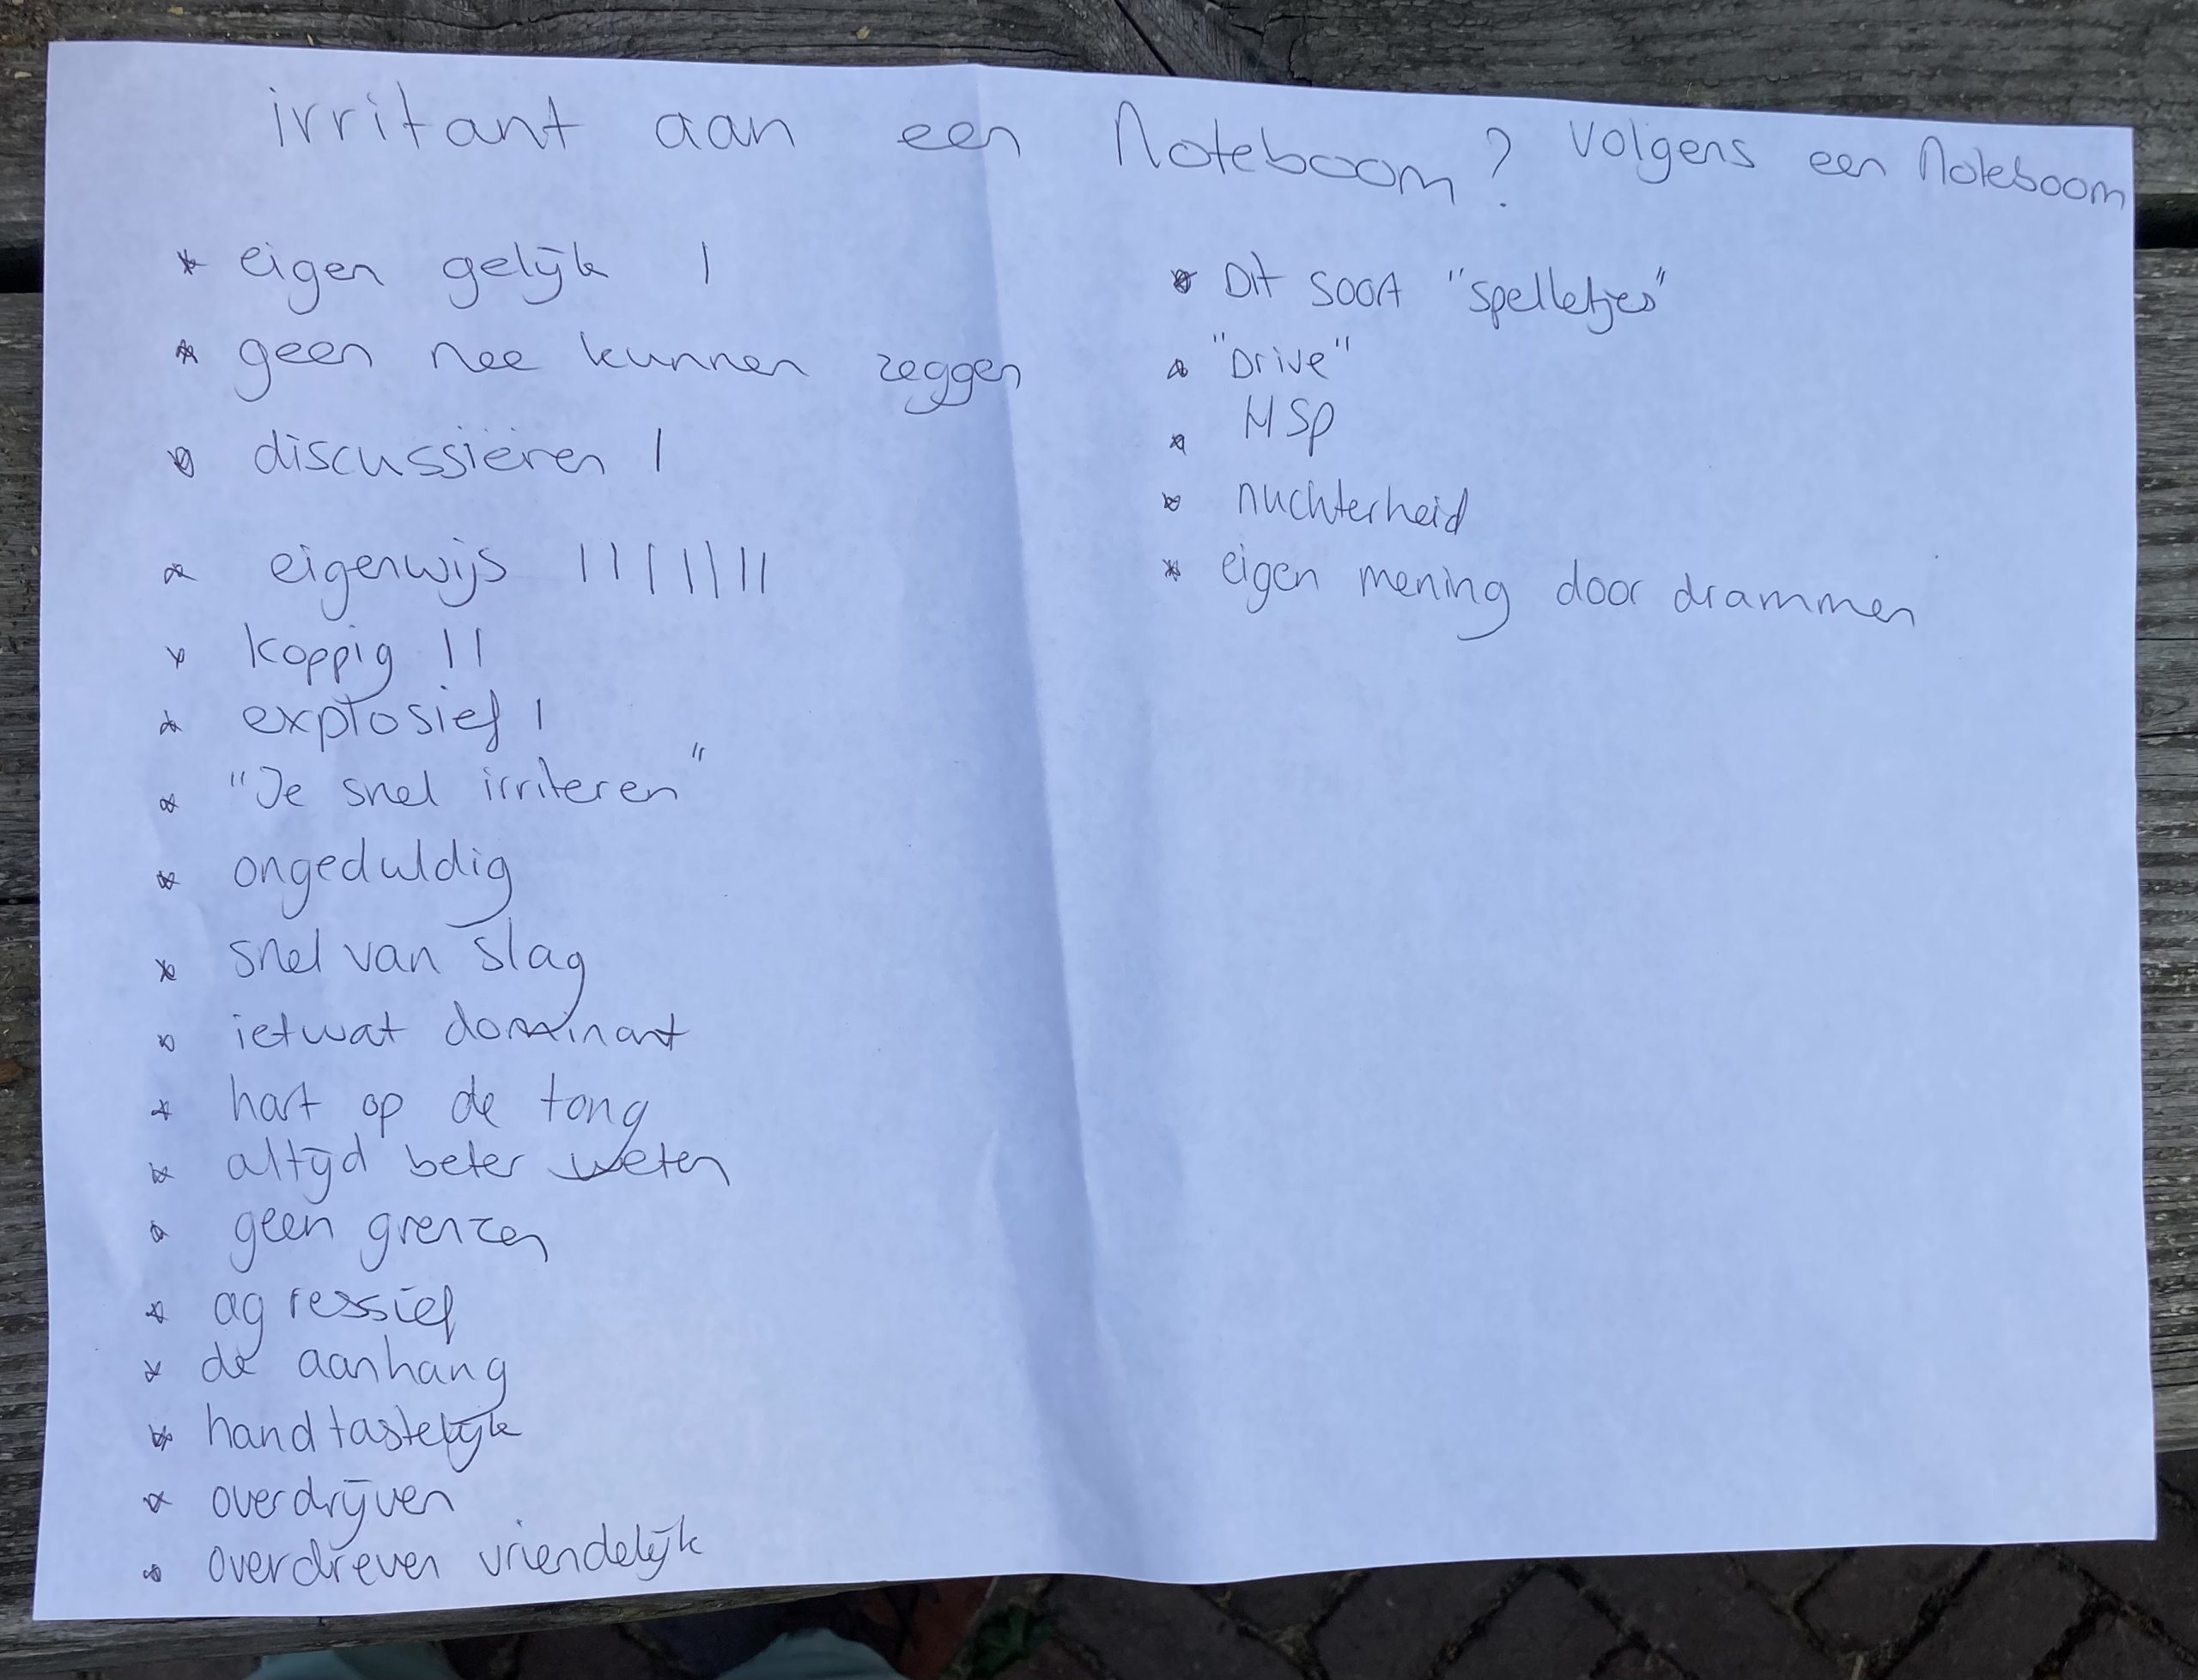 irritant aan een Noteboom? Volgens een Noteboom
* eigen gelijk |
* geen nee kunnen zeggen
* discussiëren |
* eigenwijs ||||||||
* koppig ||
* explosief |
* "Je snel irriteren"
* ongeduldig
* snel van slag
* ietwat dominant
* hart op de tong
* altijd beter weten
* geen grenzen
* agressief
* de aanhang
* handtastelijk
* overdrijven
* overdreven vriendelijk
* Dit soort "spelletjes"
* "Drive"
* HSP
* nuchterheid
* eigen mening door drammen